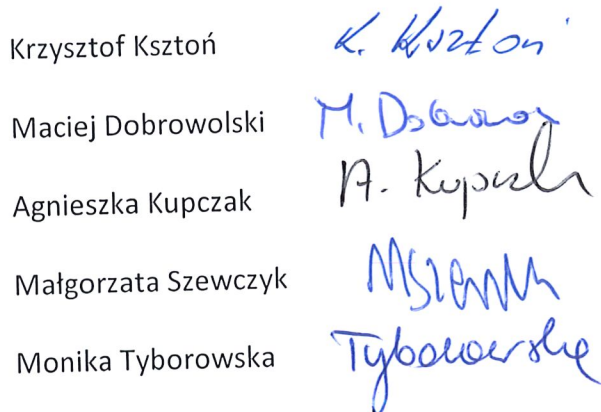 Krzysztof Ksztoń K. Ksztoń
Maciej Dobrowolski M. Dobrowol
Agnieszka Kupczak A. Kupczak
Małgorzata Szewczyk MSzewczyk
Monika Tyborowska Tyborowska